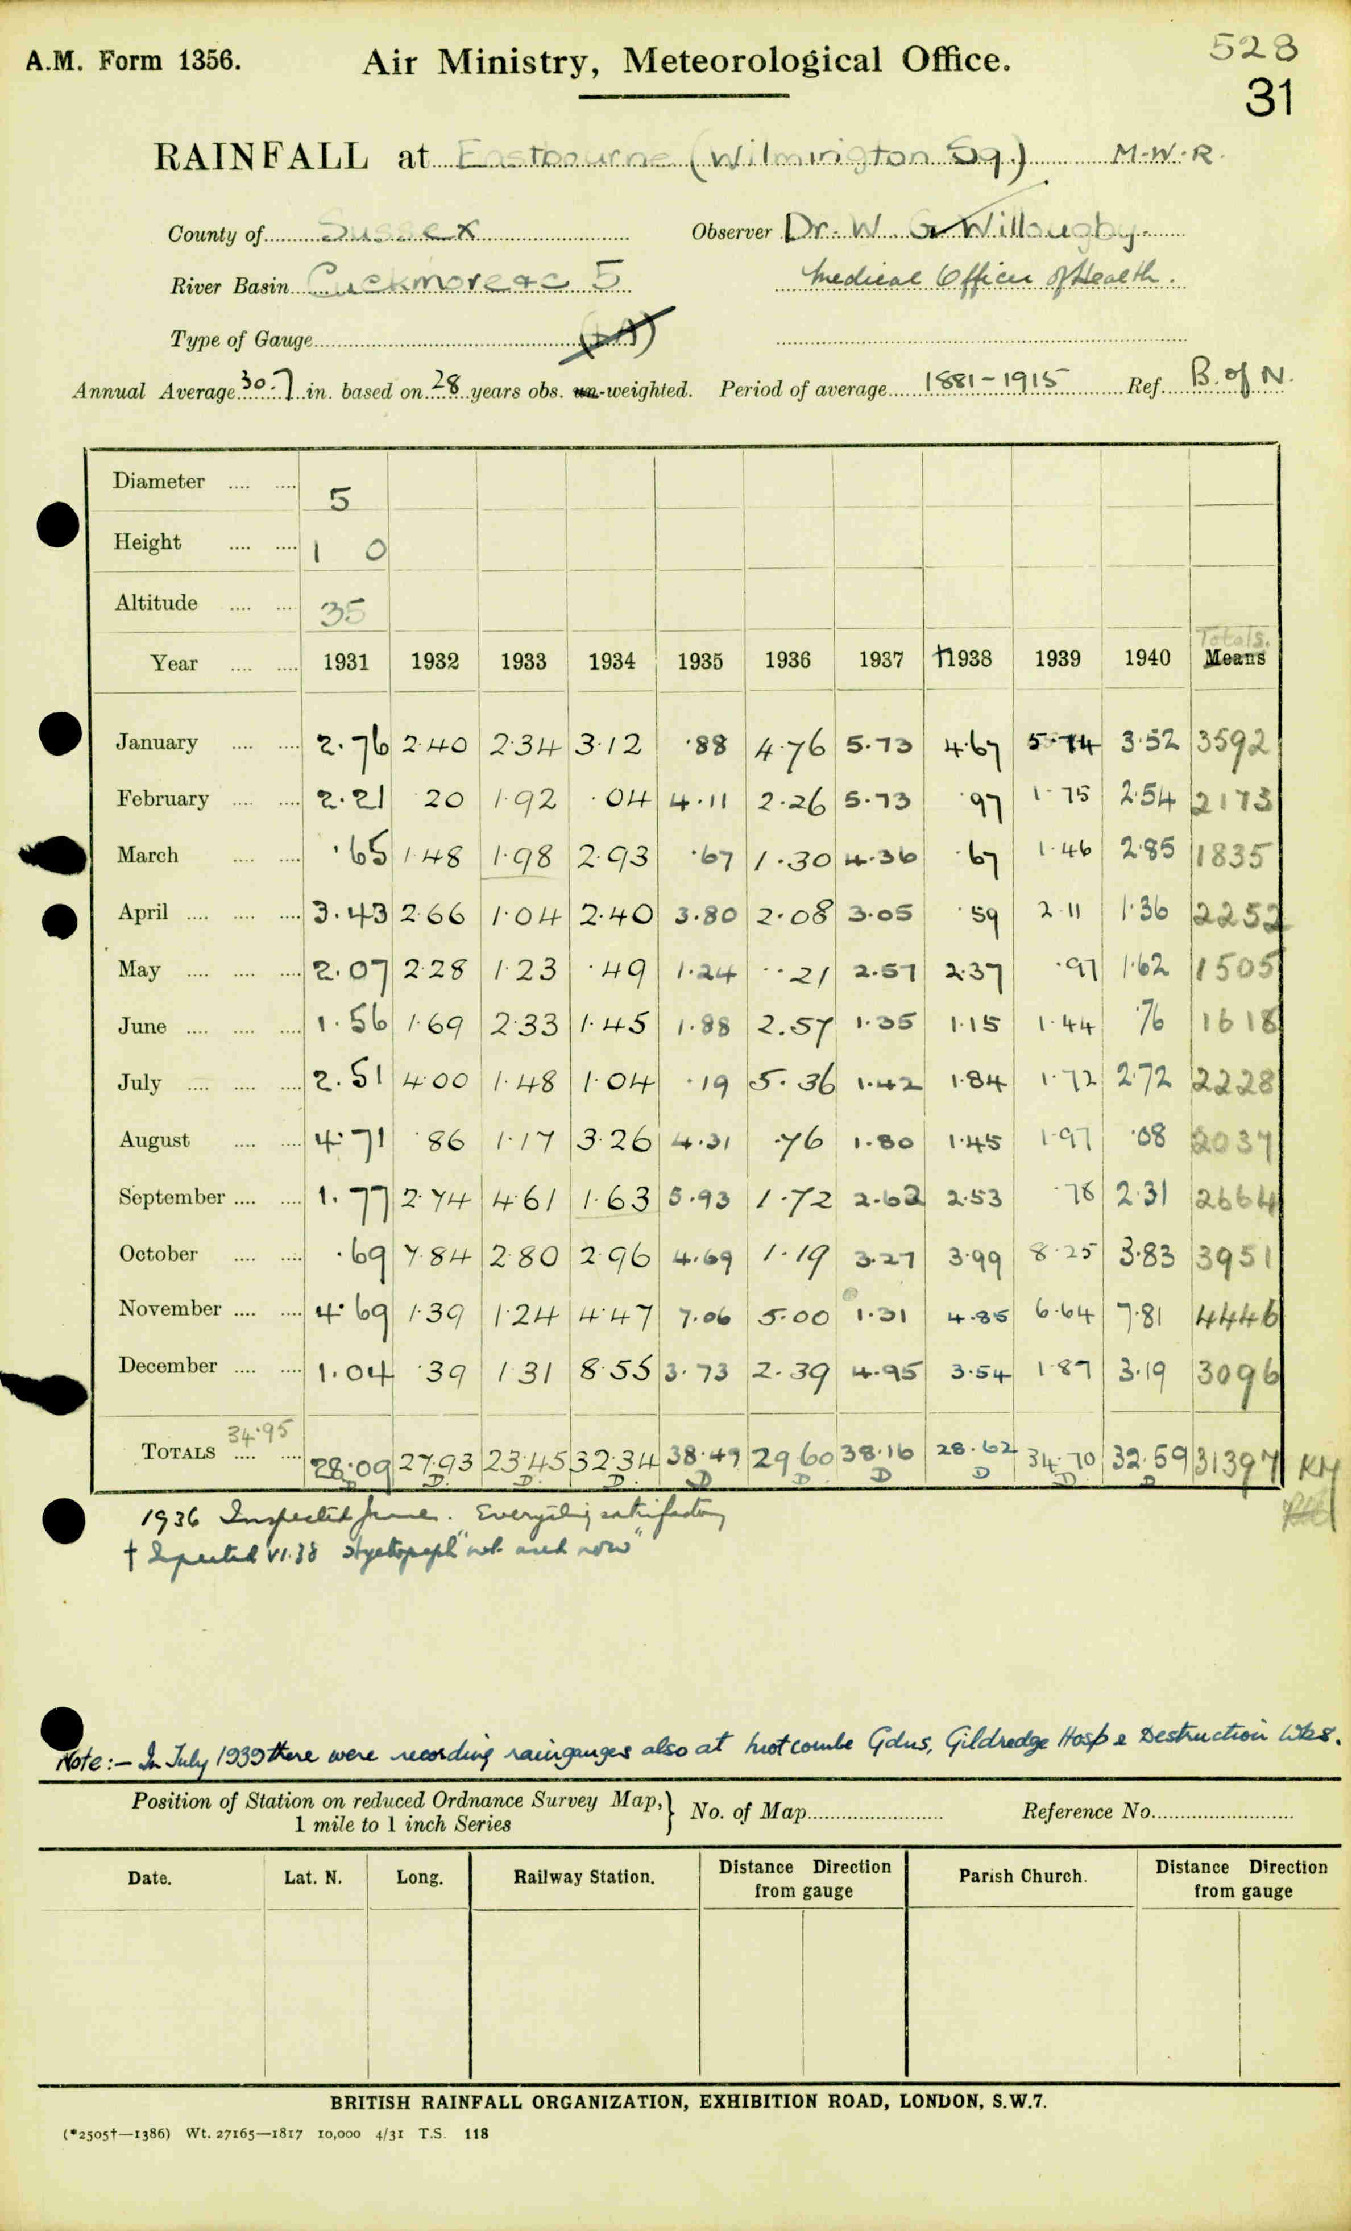 A.M. Form 1356. Air Ministry, Meteorological Office. 528
31
RAINFALL at Eastbourne (Wilmington Sq.) M.W.R.
County of Sussex Observer Dr. W. G. Willougby.
River Basin Cuckmere &c 5 Medical Officer of Health.
Type of Gauge (LA)
Annual Average 30.7 in. based on 28 years obs. un-weighted. Period of average 1881-1915 Ref. B. of N.
Diameter .... .... 5
Height .... .... 1 0
Altitude .... .... 35
Totals.
Year .... .... 1931 1932 1933 1934 1935 1936 1937 †1938 1939 1940 Means
January .... .... 2.76 2.40 2.34 3.12 .88 4.76 5.73 4.67 5.74 3.52 3592
February .... .... 2.21 20 1.92 .04 4.11 2.26 5.73 .97 1.75 2.54 2173
March .... .... .65 1.48 1.98 2.93 .67 1.30 4.36 .67 1.46 2.85 1835
April .... .... .... 3.43 2.66 1.04 2.40 3.80 2.08 3.05 .59 2.11 1.36 2252
May .... .... .... 2.07 2.28 1.23 .49 1.24 .21 2.57 2.37 .97 1.62 1505
June .... .... .... 1.56 1.69 2.33 1.45 1.88 2.57 1.35 1.15 1.44 .76 1618
July .... .... .... 2.51 4.00 1.48 1.04 .19 5.36 1.42 1.84 1.72 2.72 2228
August .... .... 4.71 .86 1.17 3.26 4.31 .76 1.80 1.45 1.97 .08 2037
September .... .... 1.77 2.74 4.61 1.63 5.93 1.72 2.62 2.53 .78 2.31 2664
October .... .... .69 7.84 2.80 2.96 4.69 1.19 3.27 3.99 8.25 3.83 3951
November .... .... 4.69 1.39 1.24 4.47 7.06 5.00 1.31 4.85 6.64 7.81 4446
December .... .... 1.04 .39 1.31 8.55 3.73 2.39 4.95 3.54 1.87 3.19 3096
34.95
TOTALS .... .... 28.09 27.93 23.45 32.34 38.49 29.60 38.16 28.62 34.70 32.59 31397 KM
D D. D. D. D D. D D D. D
1936 Inspected June. Everything satisfactory
† Inspected VI.38 Hyetograph "not used now"
Note:- In July 1939 there were recording raingauges also at Motcombe Gdns, Gildredge Hosp & Destruction Wks.
Position of Station on reduced Ordnance Survey Map, } No. of Map Reference No.
1 mile to 1 inch Series
Date. Lat. N. Long. Railway Station. Distance Direction from gauge Parish Church. Distance Direction from gauge
BRITISH RAINFALL ORGANIZATION, EXHIBITION ROAD, LONDON, S.W.7.
(*2505†—1386) Wt. 27165—1817 10,000 4/31 T.S. 118